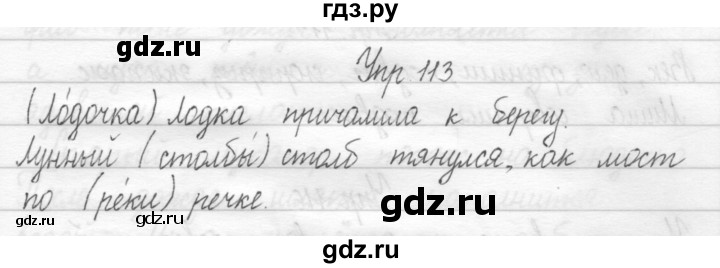 гдз.ру
Упр 113
(ло́дочка) лодка причалила к берегу.
Лунный (столбы́) столб тянулся, как мост
по (ре́ки) речке.
gdz.ru
gdz.ru
gdz.ru
gdz.ru
gdz.ru